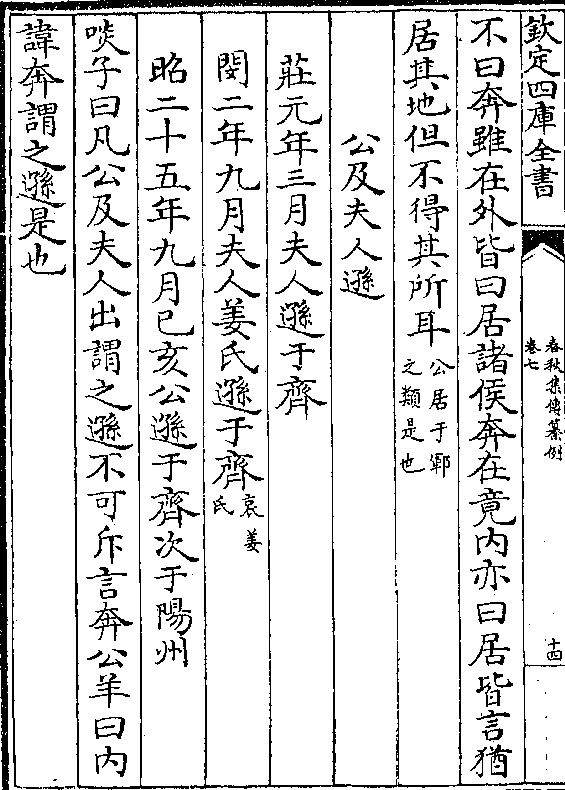 欽定四庫全書
春秋集傳纂例
卷七
十四
不曰奔雖在外皆曰居諸侯奔在竟内亦曰居皆言猶
居其地但不得其所耳公居于鄆
之類是也
公及夫人遜
莊元年三月夫人遜于齊
閔二年九月夫人姜氏遜于齊哀姜
氏
昭二十五年九月已亥公遜于齊次于陽州
啖子曰凡公及夫人出謂之遜不可斥言奔公羊曰内
諱奔謂之遜是也